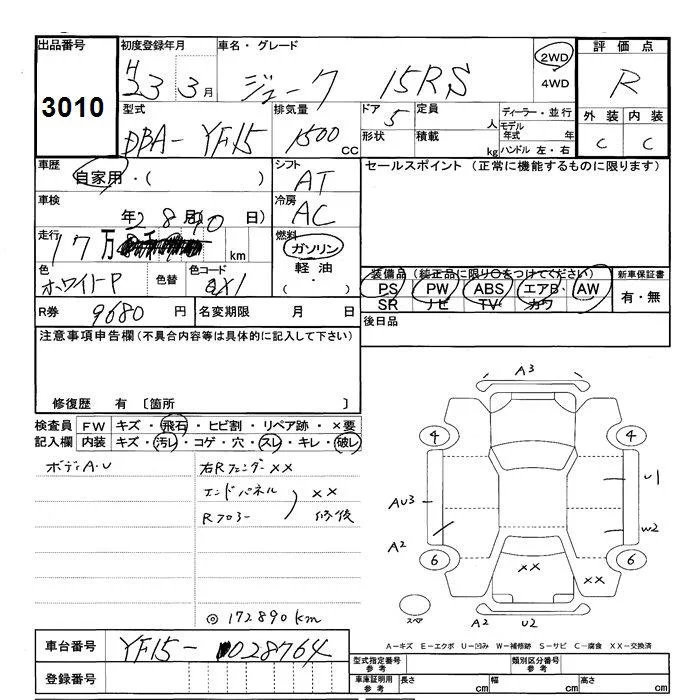 出品番号
3010
初度登録年月
H 23 3月
車名・グレード
ジューク 15RS
2WD
4WD
評価点
R
外装 内装
C C
型式
DBA-YF15
排気量
1500 CC
ドア 5
形状
定員 人
積載 kg
ディーラー・並行
モデル年式 年
ハンドル 左・右
車歴
自家用・( )
シフト
AT
セールスポイント(正常に機能するものに限ります)
車検
年 2 8月 10日)
冷房
AC
走行
17万 km
燃料
ガソリン
軽油
・
色
ホワイトP
色替
色コード
QX1
装備品(純正品に限り○をつけてください)
PS PW ABS エアB・ AW
SR ナビ TV カワ
新車保証書
有・無
R券 9680 円
名変期限 月 日
後日品
注意事項申告欄(不具合内容等は具体的に記入して下さい)
修復歴 有 〔箇所 〕
検査員 FW キズ・飛石・ヒビ割・リペア跡・×要
記入欄 内装 キズ・汚レ・コゲ・穴・スレ・キレ・破レ
ボディA・U
右Rフェンダー××
エンドパネル
Rフロアー
×× 修復
◎172890km
A3
4 4
AU3
U1
A2
W2
6 6
×× ××
スペア
A2 U2
A-キズ E-エクボ U-凹み W-補修跡 S-サビ C-腐食 XX-交換済
車台番号 YF15-028764
登録番号
型式指定番号 参考
類別区分番号 参考
車庫証明用 参考
長さ cm
幅 cm
高さ cm